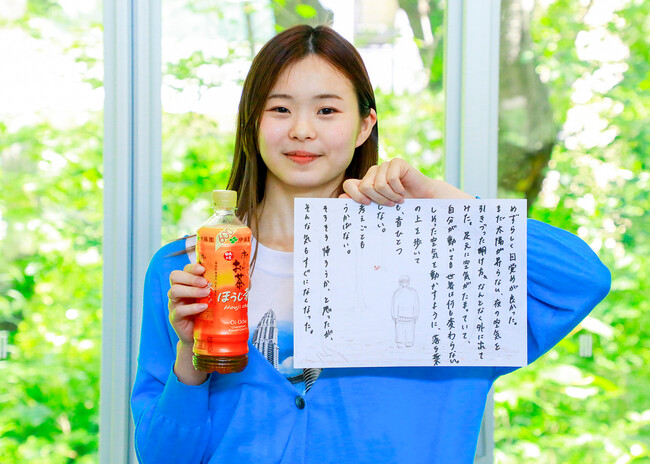 めずらしく、目覚めが良かった。
まだ太陽が昇らない、夜の空気を
引きずった明け方。なんとなく外に出て
みた。足元に空気がたまっていて、
自分が動いても世界は何も変わらない。
しめった空気を動かすように、落ち葉
の上を歩いて
も、音ひとつ
しない。
考えごとも
うかばない。
そろそろ帰ろうか、と思ったが、
そんな気もすぐになくなった。
伊藤園
お〜いお茶
ほうじ茶